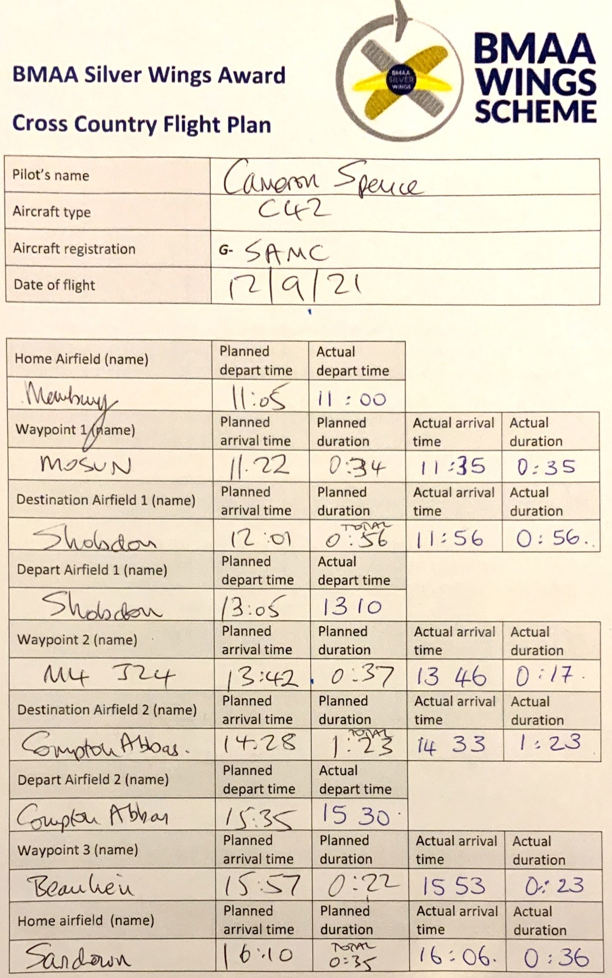 BMAA Silver Wings Award
Cross Country Flight Plan
BMAA
WINGS
SCHEME
BMAA
SILVER
WINGS
Pilot's name Cameron Spence
Aircraft type C42
Aircraft registration G- SAMC
Date of flight 12/9/21
Home Airfield (name) Planned depart time Actual depart time
Newbury 11:05 11:00
Waypoint 1 (name) Planned arrival time Planned duration Actual arrival time Actual duration
MOSUN 11.22 0:34 11:35 0:35
Destination Airfield 1 (name) Planned arrival time Planned duration Actual arrival time Actual duration
Shobdon 12:01 TOTAL 0:56 11:56 0:56.
Depart Airfield 1 (name) Planned depart time Actual depart time
Shobdon 13:05 13 10
Waypoint 2 (name) Planned arrival time Planned duration Actual arrival time Actual duration
M4 J24 13:42 0:37 13 46 0:17.
Destination Airfield 2 (name) Planned arrival time Planned duration Actual arrival time Actual duration
Compton Abbas. 14:28 TOTAL 1:23 14 33 1:23
Depart Airfield 2 (name) Planned depart time Actual depart time
Compton Abbas 15:35 15 30
Waypoint 3 (name) Planned arrival time Planned duration Actual arrival time Actual duration
Beaulieu 15:57 0:22 15 53 0:23
Home airfield (name) Planned arrival time Planned duration Actual arrival time Actual duration
Sandown 16:10 TOTAL 0:35 16:06. 0:36